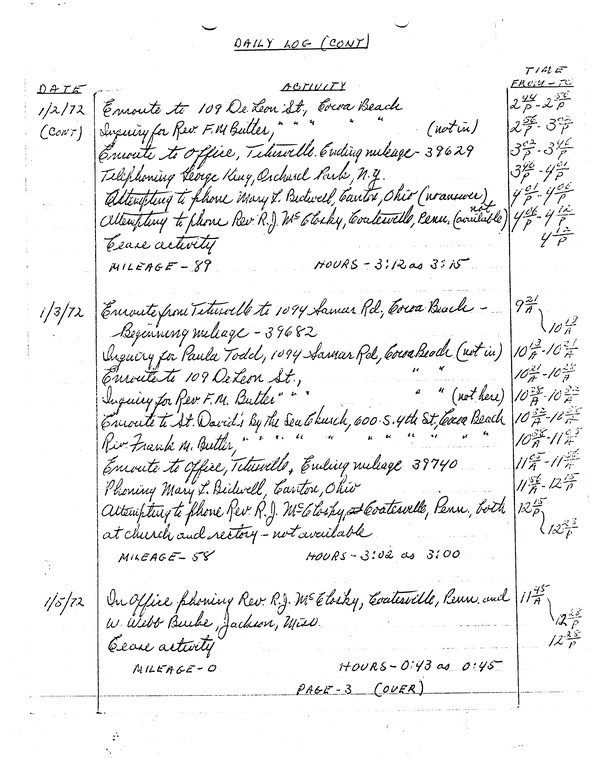 DAILY LOG (CONT)
TIME
DATE ACTIVITY FROM - TO
1/2/72 Enroute to 109 De Leon St., Cocoa Beach 2 44/P - 2 56/P
(CONT) Inquiry for Rev. F.M. Butler, " " " " " (not in) 2 56/P - 3 02/P
Enroute to Office, Titusville. Ending mileage - 39629 3 02/P - 3 46/P
Telephoning George King, Orchard Park, N.Y. 3 46/P - 4 01/P
Attempting to phone Mary L. Bidwell, Canton, Ohio (no answer) 4 01/P - 4 06/P
Attempting to phone Rev. R.J. McClosky, Coatesville, Penn. (not available) 4 06/P - 4 12/P
Cease activity 4 12/P
MILEAGE - 89 HOURS - 3:12 as 3:15
1/3/72 Enroute from Titusville to 1094 Samar Rd., Cocoa Beach - 9 21/A
Beginning mileage - 39682 10 13/A
Inquiry for Paula Todd, 1094 Samar Rd, Cocoa Beach (not in) 10 13/A - 10 21/A
Enroute to 109 De Leon St., " " 10 21/A - 10 28/A
Inquiry for Rev F.M. Butler " " " " " (not here) 10 28/A - 10 32/A
Enroute to St. David's By the Sea Church, 600 S. 4th St, Cocoa Beach 10 32/A - 10 38/A
Rev. Frank M. Butler, " " " " " " " " " " " 10 38/A - 11 05/A
Enroute to Office, Titusville, Ending mileage 39740 11 05/A - 11 56/A
Phoning Mary L. Bidwell, Canton, Ohio 11 56/A - 12 15/P
Attempting to phone Rev. R.J. McClosky, Coatesville, Penn., both 12 15/P
at church and rectory - not available 12 23/P
MILEAGE - 58 HOURS - 3:02 as 3:00
1/5/72 In Office phoning Rev. R.J. McClosky, Coatesville, Penn. and 11 45/A
W. Webb Burke, Jackson, Miss. 12 28/P
Cease activity 12 28/P
MILEAGE - 0 HOURS - 0:43 as 0:45
PAGE - 3 (OVER)